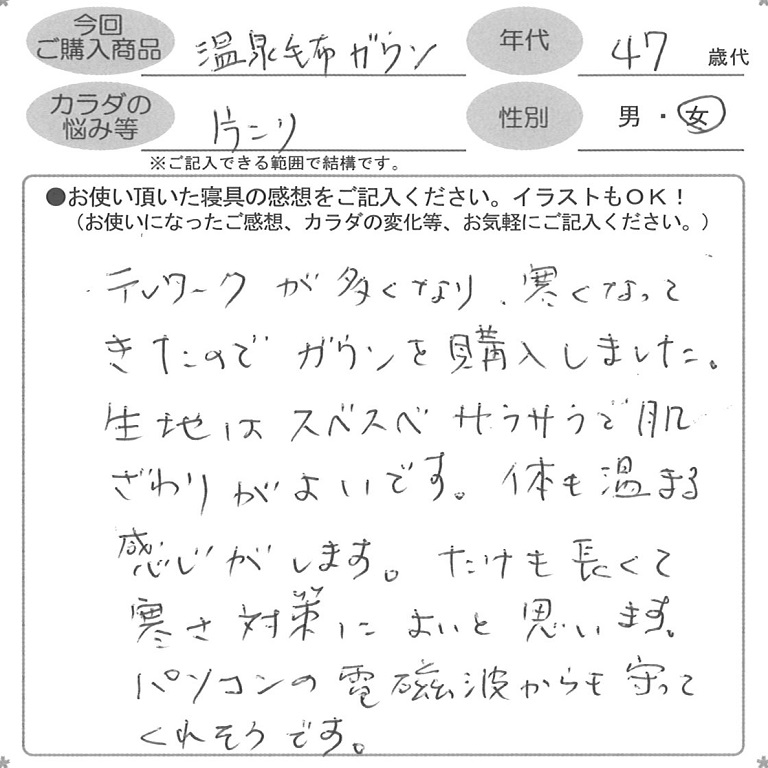 今回
ご購入商品
温泉毛布ガウン
年代
47 歳代
カラダの
悩み等
片こり
性別
男・女
※ご記入できる範囲で結構です。
●お使い頂いた寝具の感想をご記入ください。イラストもOK！
（お使いになったご感想、カラダの変化等、お気軽にご記入ください。）
テレワークが多くなり、寒くなって
きたのでガウンを購入しました。
生地はスベスベサラサラで肌
ざわりがよいです。体も温まる
感じがします。たけも長くて
寒さ対策によいと思います。
パソコンの電磁波からも守って
くれそうです。